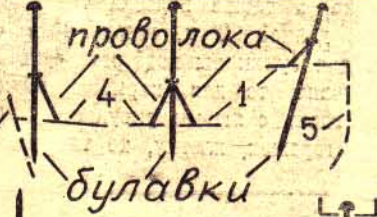 проволока
4 1
5
булавки